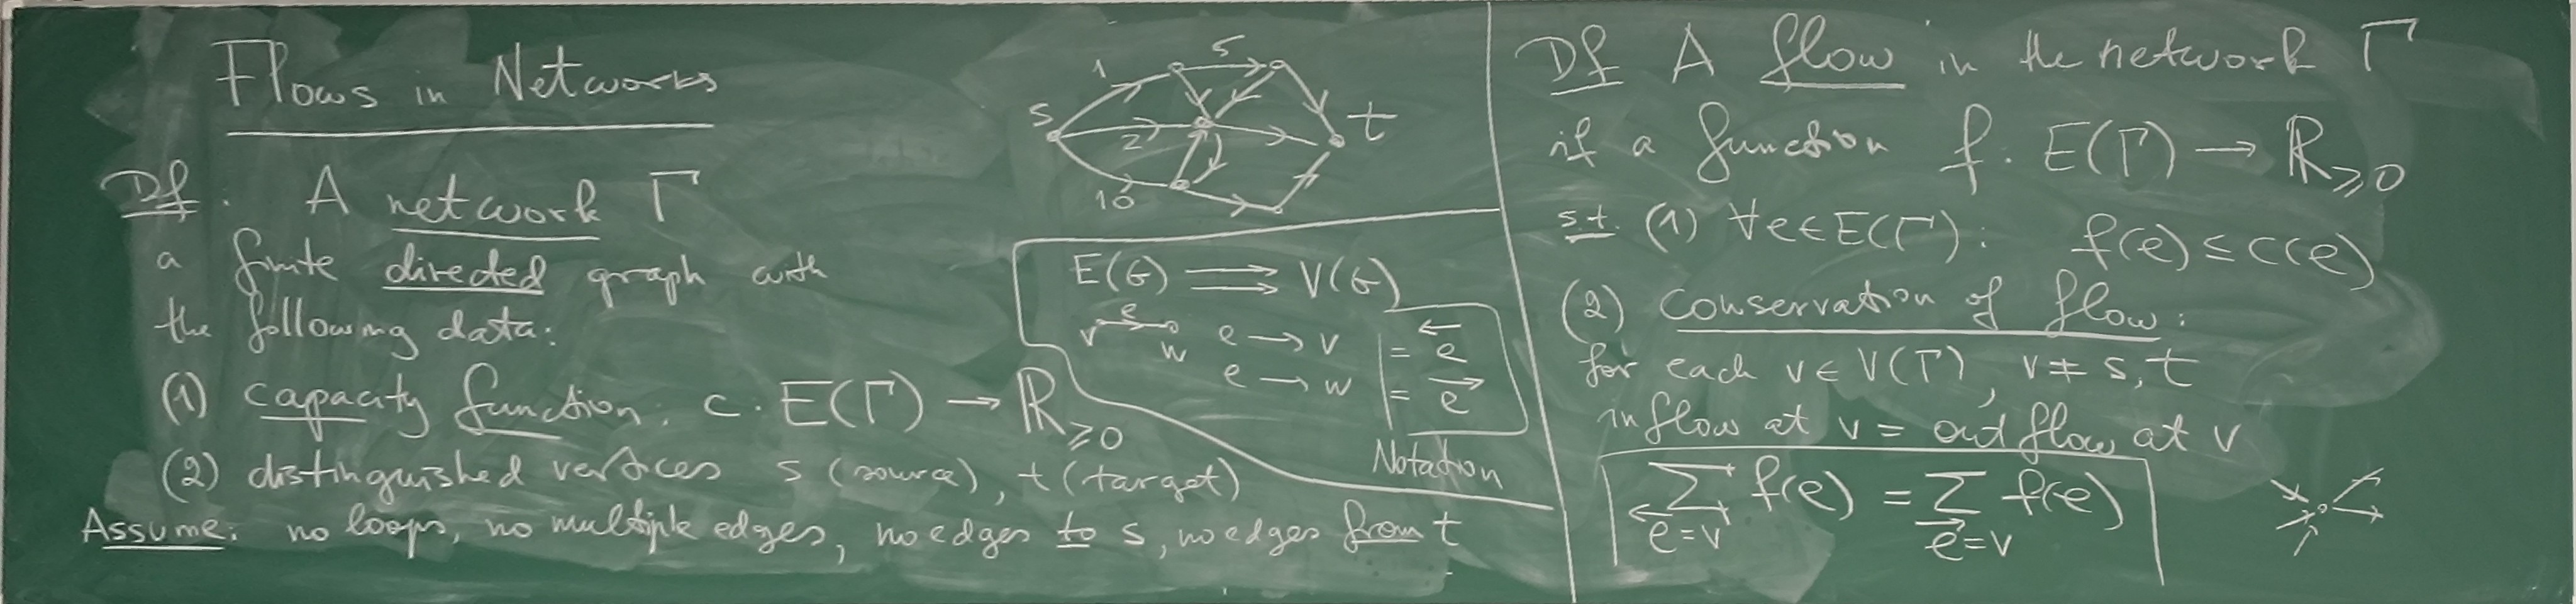 Flows in Networks
Df. A network Γ
a finite directed graph with
the following data:
(1) capacity function: c: E(Γ) → ℝ≥0
(2) distinguished vertices s (source), t (target)
Assume: no loops, no multiple edges, no edges to s, no edges from t
s 1 5 2 10 t
E(G) ⇉ V(G)
v e w
e → v = e⃖
e → w = e⃗
Notation
Df A flow in the network Γ
if a function f: E(Γ) → ℝ≥0
s.t. (1) ∀e∈E(Γ): f(e) ≤ c(e)
(2) conservation of flow:
for each v ∈ V(Γ), v ≠ s, t
inflow at v = outflow at v
∑ f(e) = ∑ f(e)
e⃖=v e⃗=v